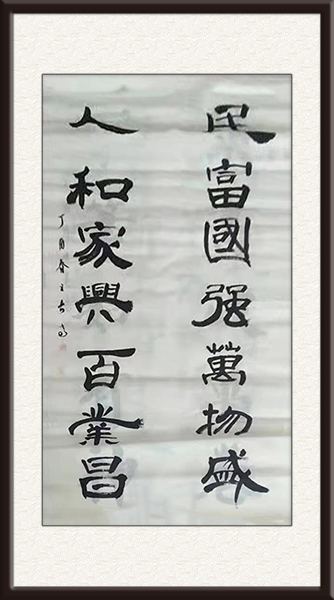 民富國强萬物盛
人和家興百業昌
丁酉春